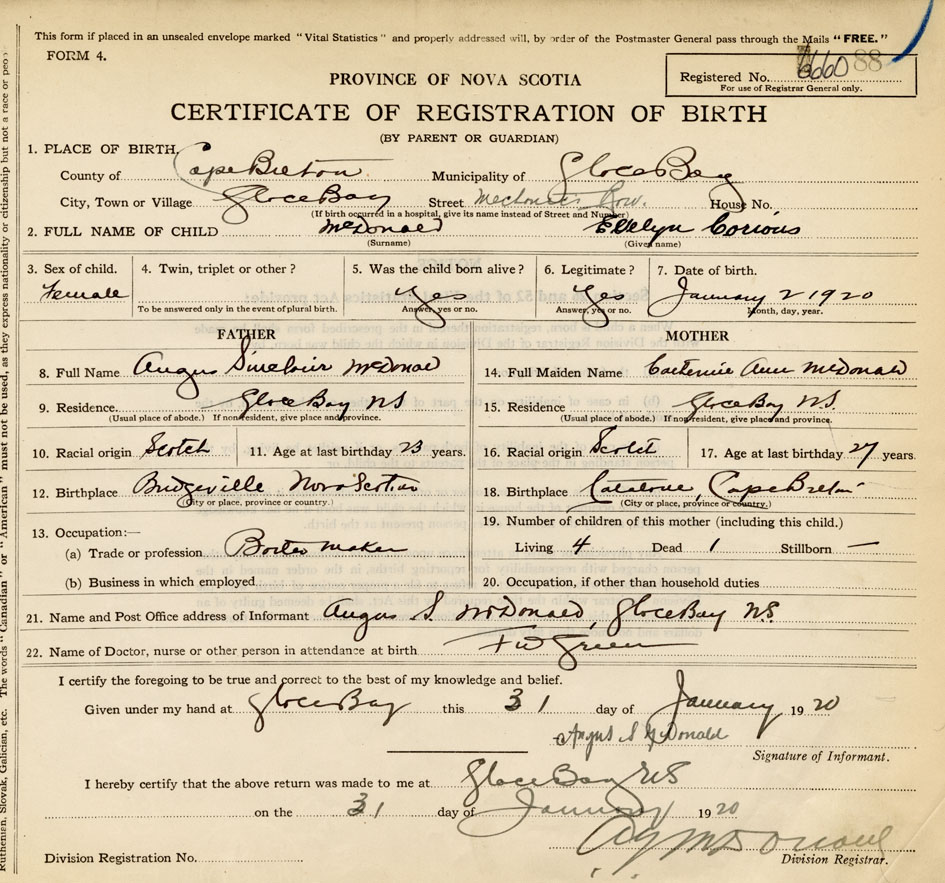 This form if placed in an unsealed envelope marked "Vital Statistics" and properly addressed will, by order of the Postmaster General pass through the Mails "FREE."
FORM 4.
Registered No. 88
For use of Registrar General only.
PROVINCE OF NOVA SCOTIA
CERTIFICATE OF REGISTRATION OF BIRTH
(BY PARENT OR GUARDIAN)
1. PLACE OF BIRTH.
County of Cape Breton Municipality of Glace Bay
City, Town or Village Glace Bay Street Row. House No.
(If birth occurred in a hospital, give its name instead of Street and Number)
2. FULL NAME OF CHILD McDonald Evelyn
(Surname) (Given name)
3. Sex of child. 4. Twin, triplet or other? 5. Was the child born alive? 6. Legitimate? 7. Date of birth.
Female Yes Yes January 2 1920
To be answered only in the event of plural birth. Answer, yes or no. Answer, yes or no. Month, day, year.
FATHER MOTHER
8. Full Name Angus Sinclair McDonald 14. Full Maiden Name Catherine Ann McDonald
9. Residence Glace Bay NS 15. Residence Glace Bay NS.
(Usual place of abode.) If nonresident, give place and province. (Usual place of abode.) If nonresident, give place and province.
10. Racial origin Scotch 11. Age at last birthday 23 years. 16. Racial origin Scotch 17. Age at last birthday 27 years.
12. Birthplace Bridgeville Nova Scotia 18. Birthplace Catalone, Cape Breton
(City or place, province or country.) (City or place, province or country.)
19. Number of children of this mother (including this child.)
13. Occupation:—
(a) Trade or profession maker Living 4 Dead 1 Stillborn —
(b) Business in which employed 20. Occupation, if other than household duties
21. Name and Post Office address of Informant Angus S. McDonald, Glace Bay N.S.
22. Name of Doctor, nurse or other person in attendance at birth Green
I certify the foregoing to be true and correct to the best of my knowledge and belief.
Given under my hand at Glace Bay this 31 day of January 1920
Angus S McDonald
Signature of Informant.
I hereby certify that the above return was made to me at Glace Bay NS
on the 31 day of January 1920
McDonald
Division Registration No. Division Registrar.
Ruthenian, Slovak, Galician, etc. The words "Canadian" or "American" must not be used, as they express nationality or citizenship but not a race or